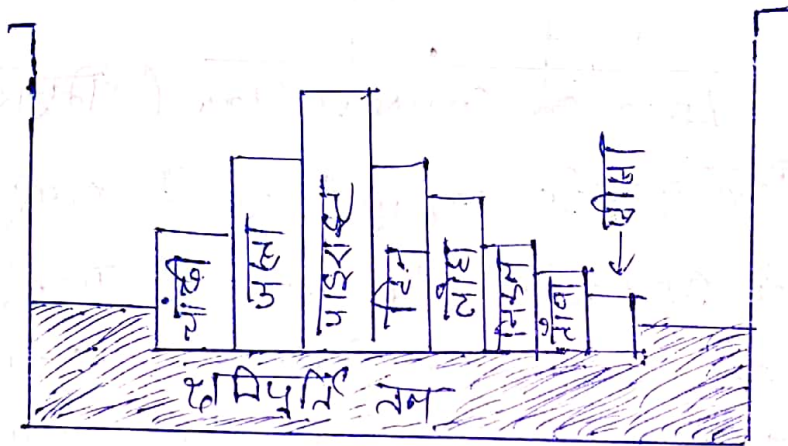 चाँदी
जस्ता
पाइराइट
टिन
लोहा
निकल
ताँबा
सीसा
क्षतिपूर्ति तल